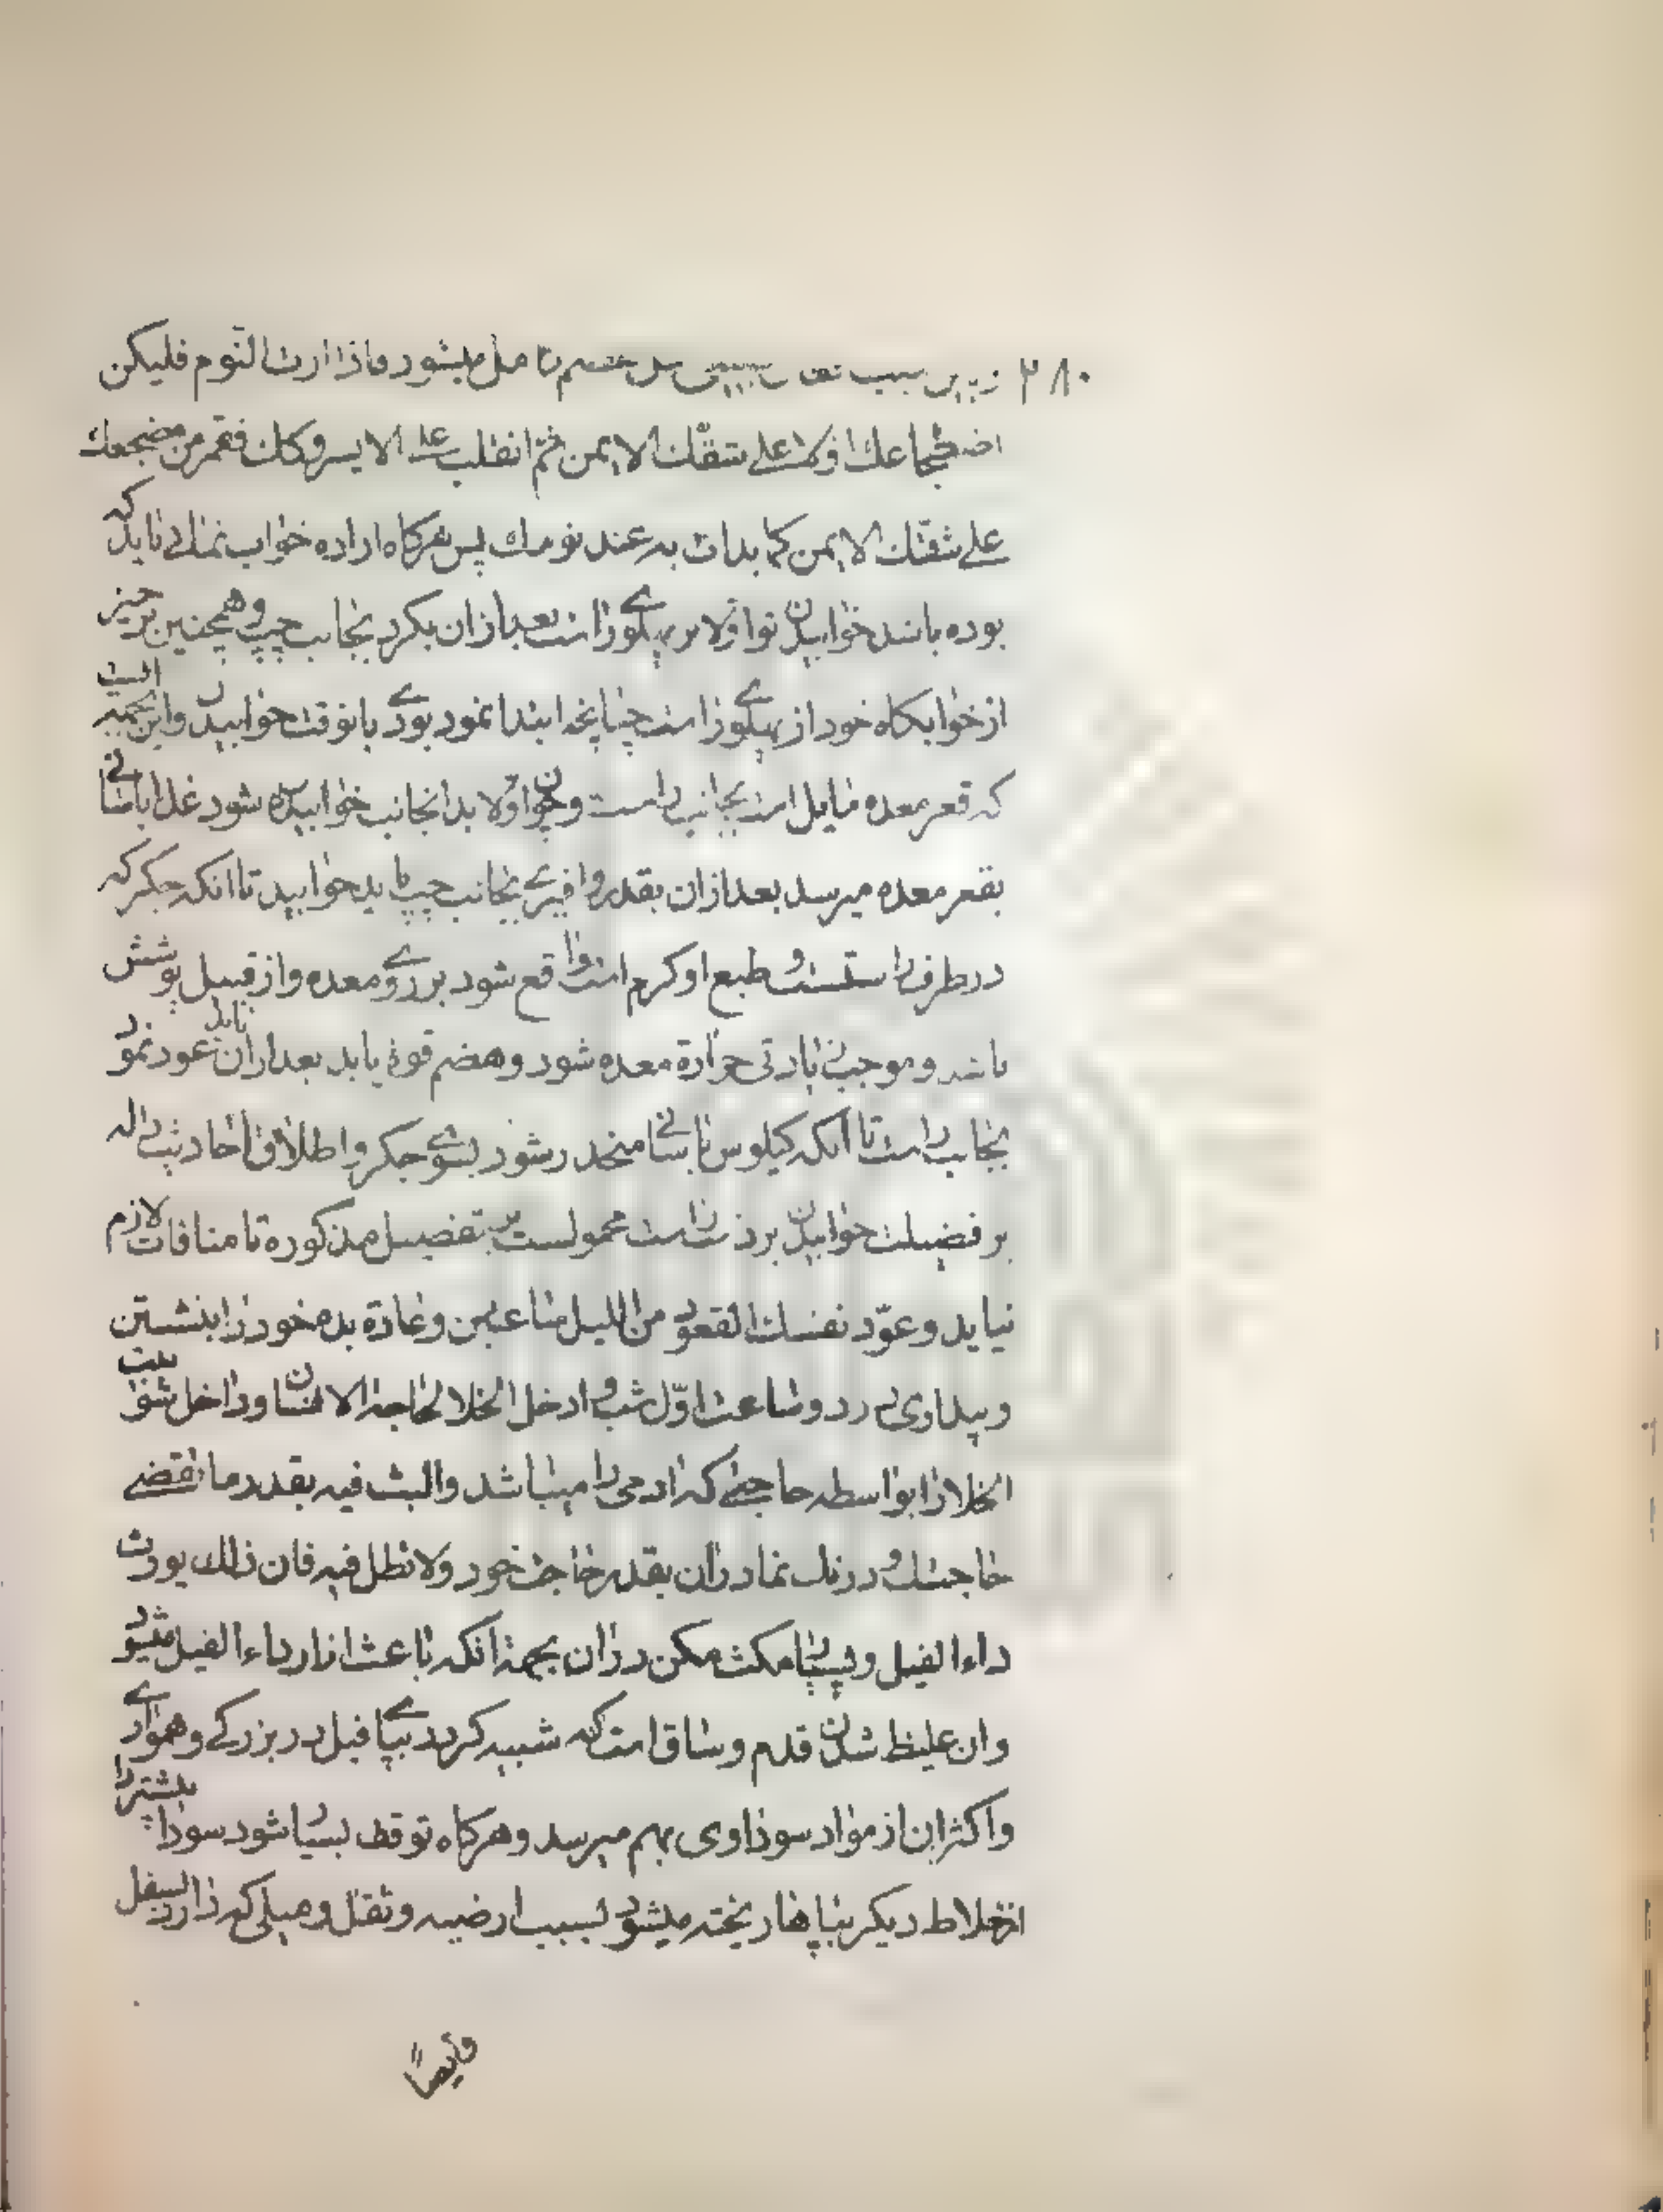 ۲۸۰ میشود فاذا اردت النوم فلیکن
اضطجاعك اولا علی شقك الایمن ثم انقلب علی الایسر وکذلك فقم من مضجعك
علی شقك الایمن کما بدات به عند نومك پس هرکاه اراده خواب نمائی باید که
بوده باشد خوابیدن تو اولا بر پهلوی راست بعد ازان بکرد بجانب چپ وهمچنین برخیز
از خوابکاه خود از پهلوی راست چنانچه ابتدا نمود بودی بانوقت خوابیدن واین بجهة انست
که قعر معده مایل است بجانب راست وچون اولا بدانجانب خوابیده شود غذا باسانی
بقعر معده میرسد بعد ازان بقدر وافری بجانب چپ باید خوابید تا انکه جکر که
در طرف راستست وطبع او کرم است واقع شود بر روی معده واز قبیل پوشش
باشد وموجب زیادتی حرارة معده شود وهضم قوة یابد بعد ازان باید عود نمود
بجانب راست تا آنکه کیلوس باسانی منحدر شود بسوی جکر واطلاق احادیث داله
بر فضیلت خوابیدن بر دست راست محمولست بر تفصیل مذکوره تا منافات لازم
نیاید وعوّد نفسك القعود من اللیل ساعتین وعادة بده خود را بنشستن
وبیداری در دو ساعت اوّل شب وادخل الخلا لحاجة الانسان وداخل شو بیت
الخلا را بواسطه حاجتی که ادمی را میباشد والبث فیه بقدر ما تقضی
حاجتك ودرنك نما دران بقدر حاجت خود ولا تطل فیه فان ذلك یورث
داء الفیل وبسیار مکث مکن دران بجهة انکه باعث ازار داء الفیل میشود
وان غلیظ شدن قدم وساق است که شبیه کردد بپای فیل در بزرکی وهمواری
واکثر این از مواد سوداوی بهم میرسد وهرکاه توقف بسیار شود سودا بیشتر از
اخلاط دیکر بپاها ریخته میشود بسبب ارضیه وثقل ومیلی که دارد بسفل
وایضاً